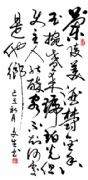 蘭陵美酒鬱金香
玉碗盛來琥珀光但
使主人能醉客不知何處
是他鄉